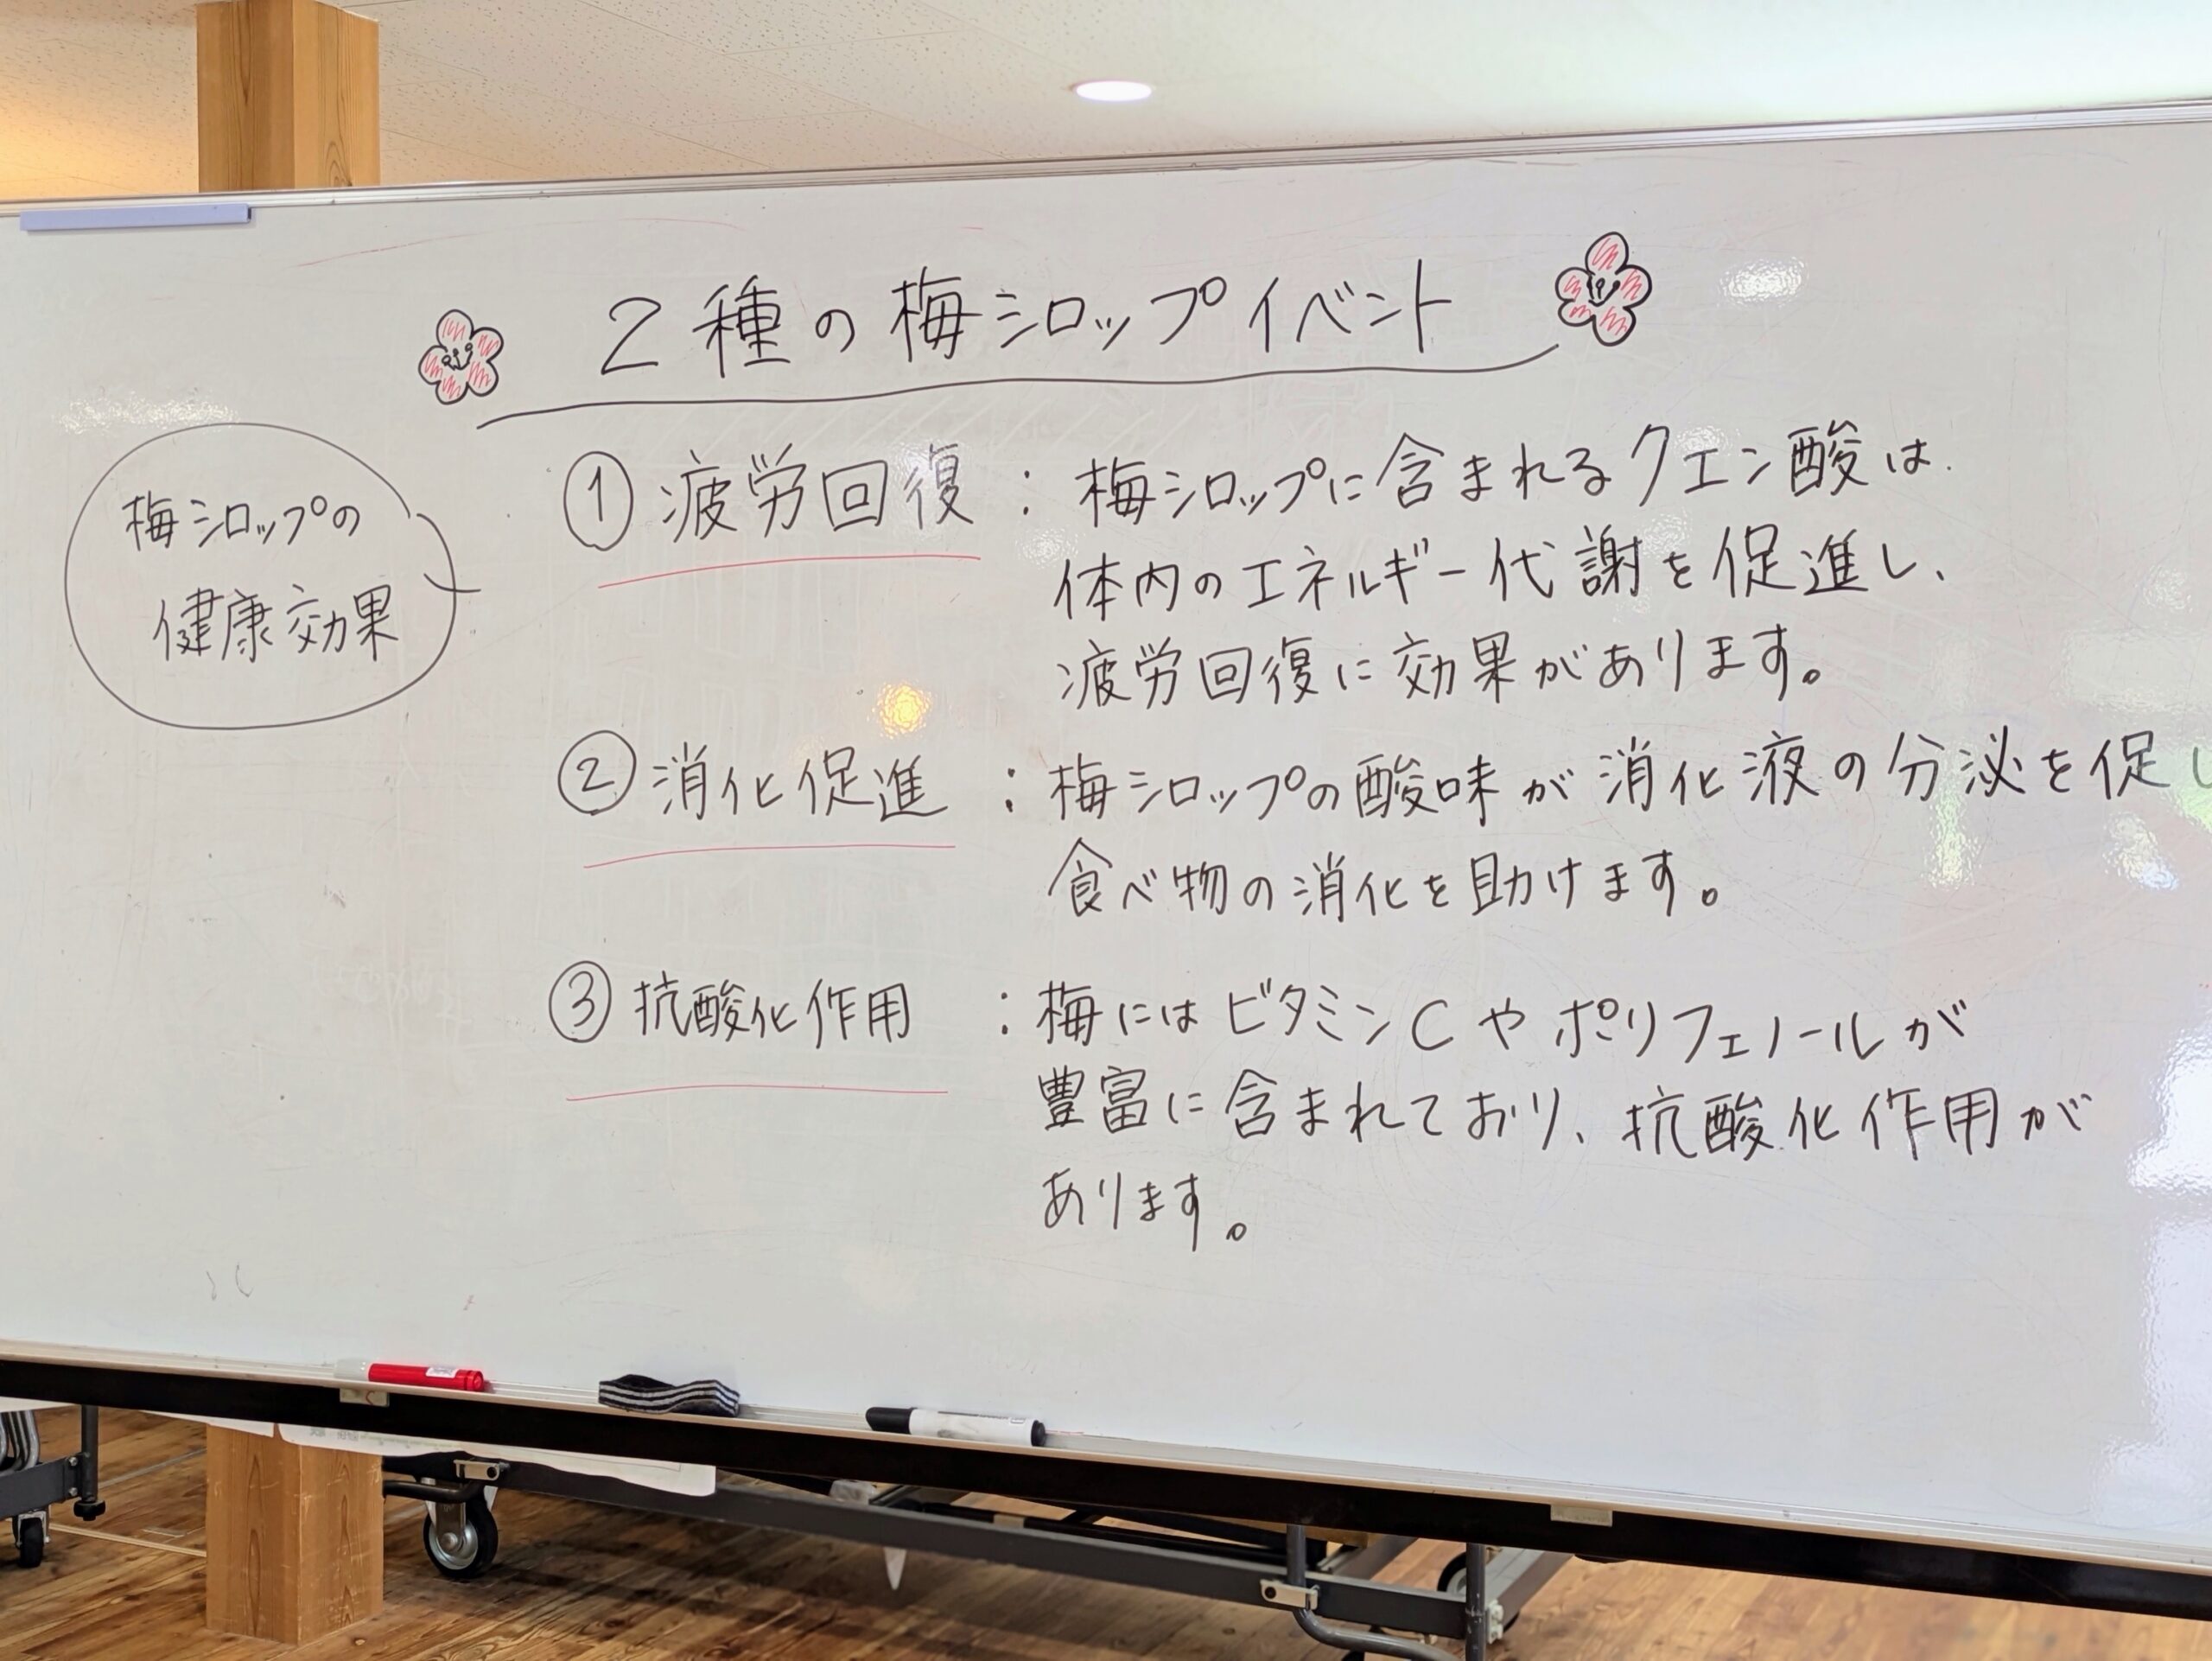 2種の梅シロップイベント
梅シロップの
健康効果
① 疲労回復 : 梅シロップに含まれるクエン酸は
体内のエネルギー代謝を促進し、
疲労回復に効果があります。
② 消化促進 : 梅シロップの酸味が消化液の分泌を促し
食べ物の消化を助けます。
③ 抗酸化作用 : 梅にはビタミンCやポリフェノールが
豊富に含まれており、抗酸化作用が
あります。